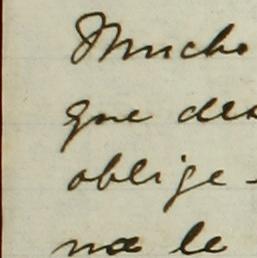 Mucho
que des
oblige-
na le